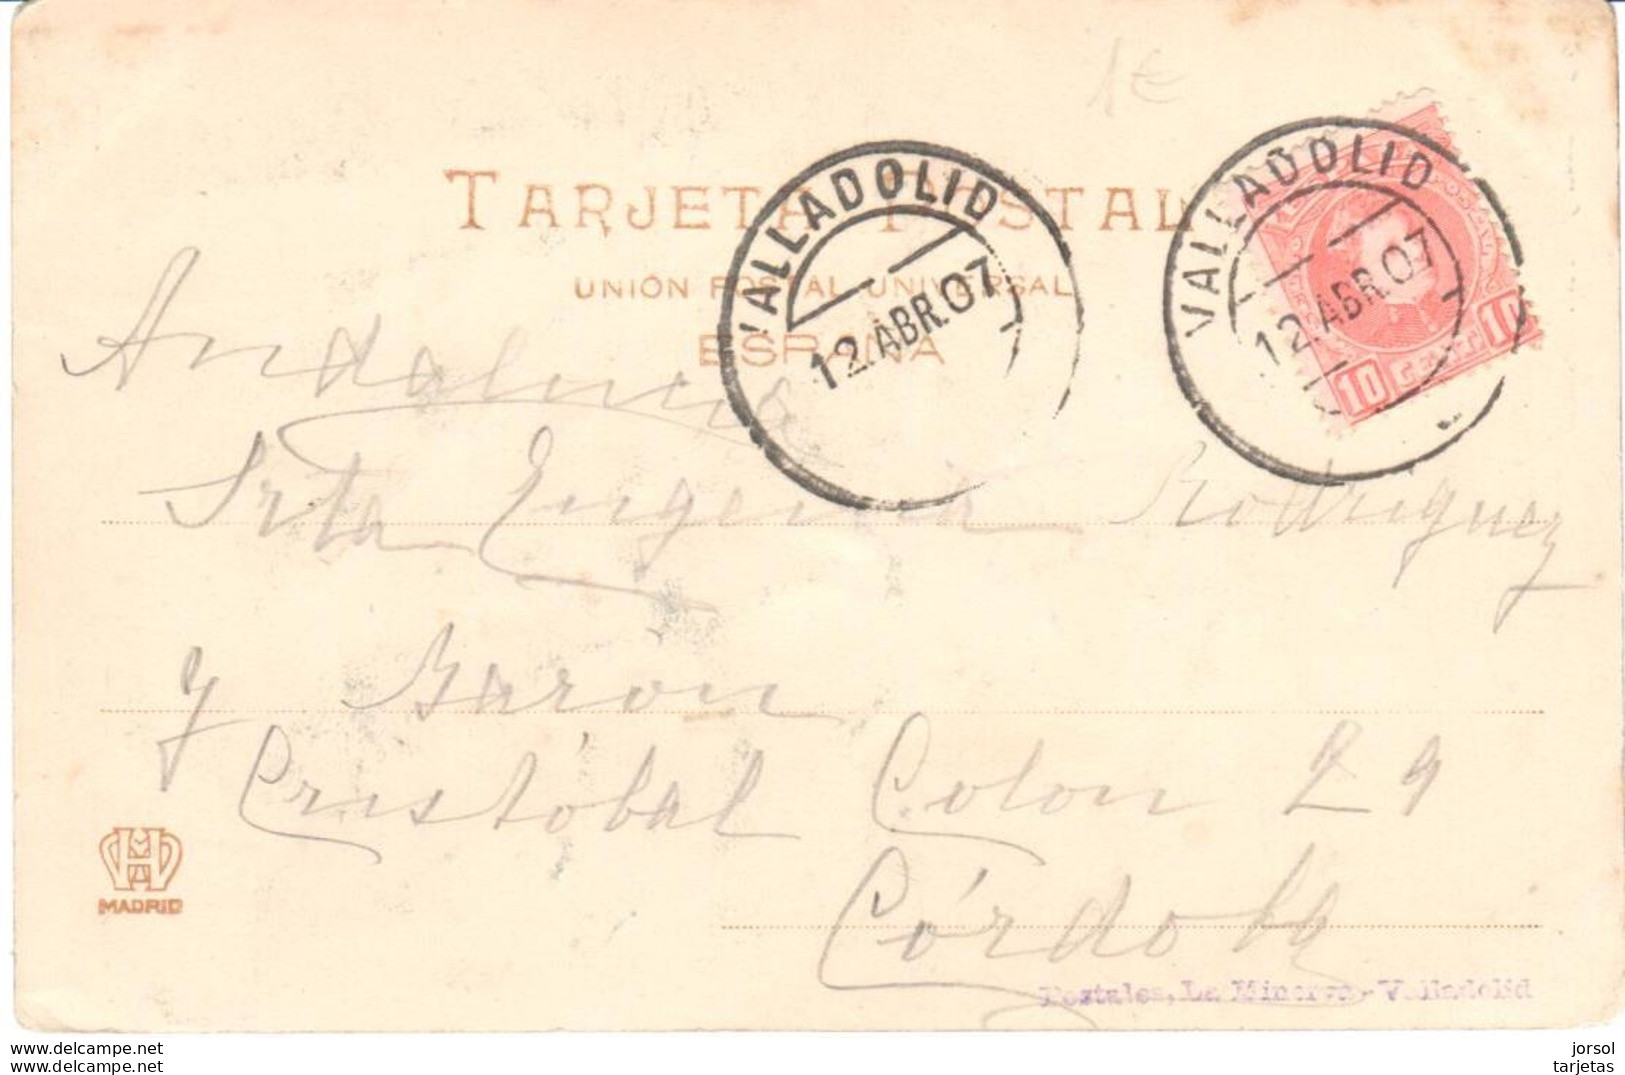 1€
TARJETA POSTAL
UNIÓN POSTAL UNIVERSAL
ESPAÑA
VALLADOLID
12.ABR.07
VALLADOLID
12.ABR.07
10 CENT. 10
Andalucia
Srta Eugenia Rodriguez
y Barón
Cristóbal Colon 29
Córdoba
MADRID
Postales, La Minerva-Valladolid
www.delcampe.net
www.delcampe.net
jorsol
tarjetas